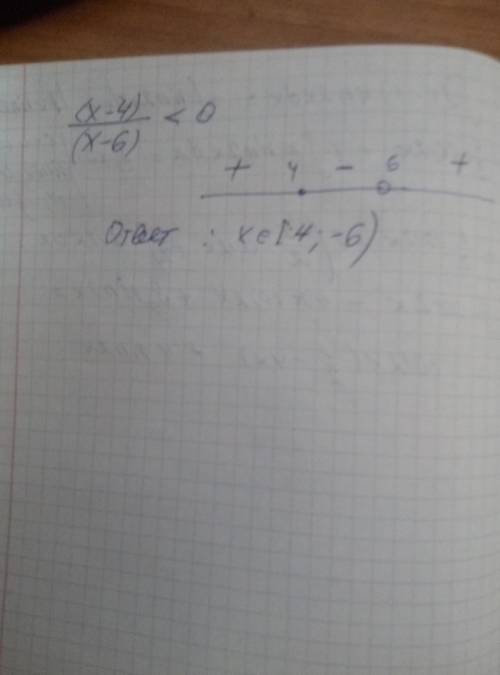 (x-4)
(x-6) < 0
+ 4 - 6 +
Ответ : x∈[4; -6)